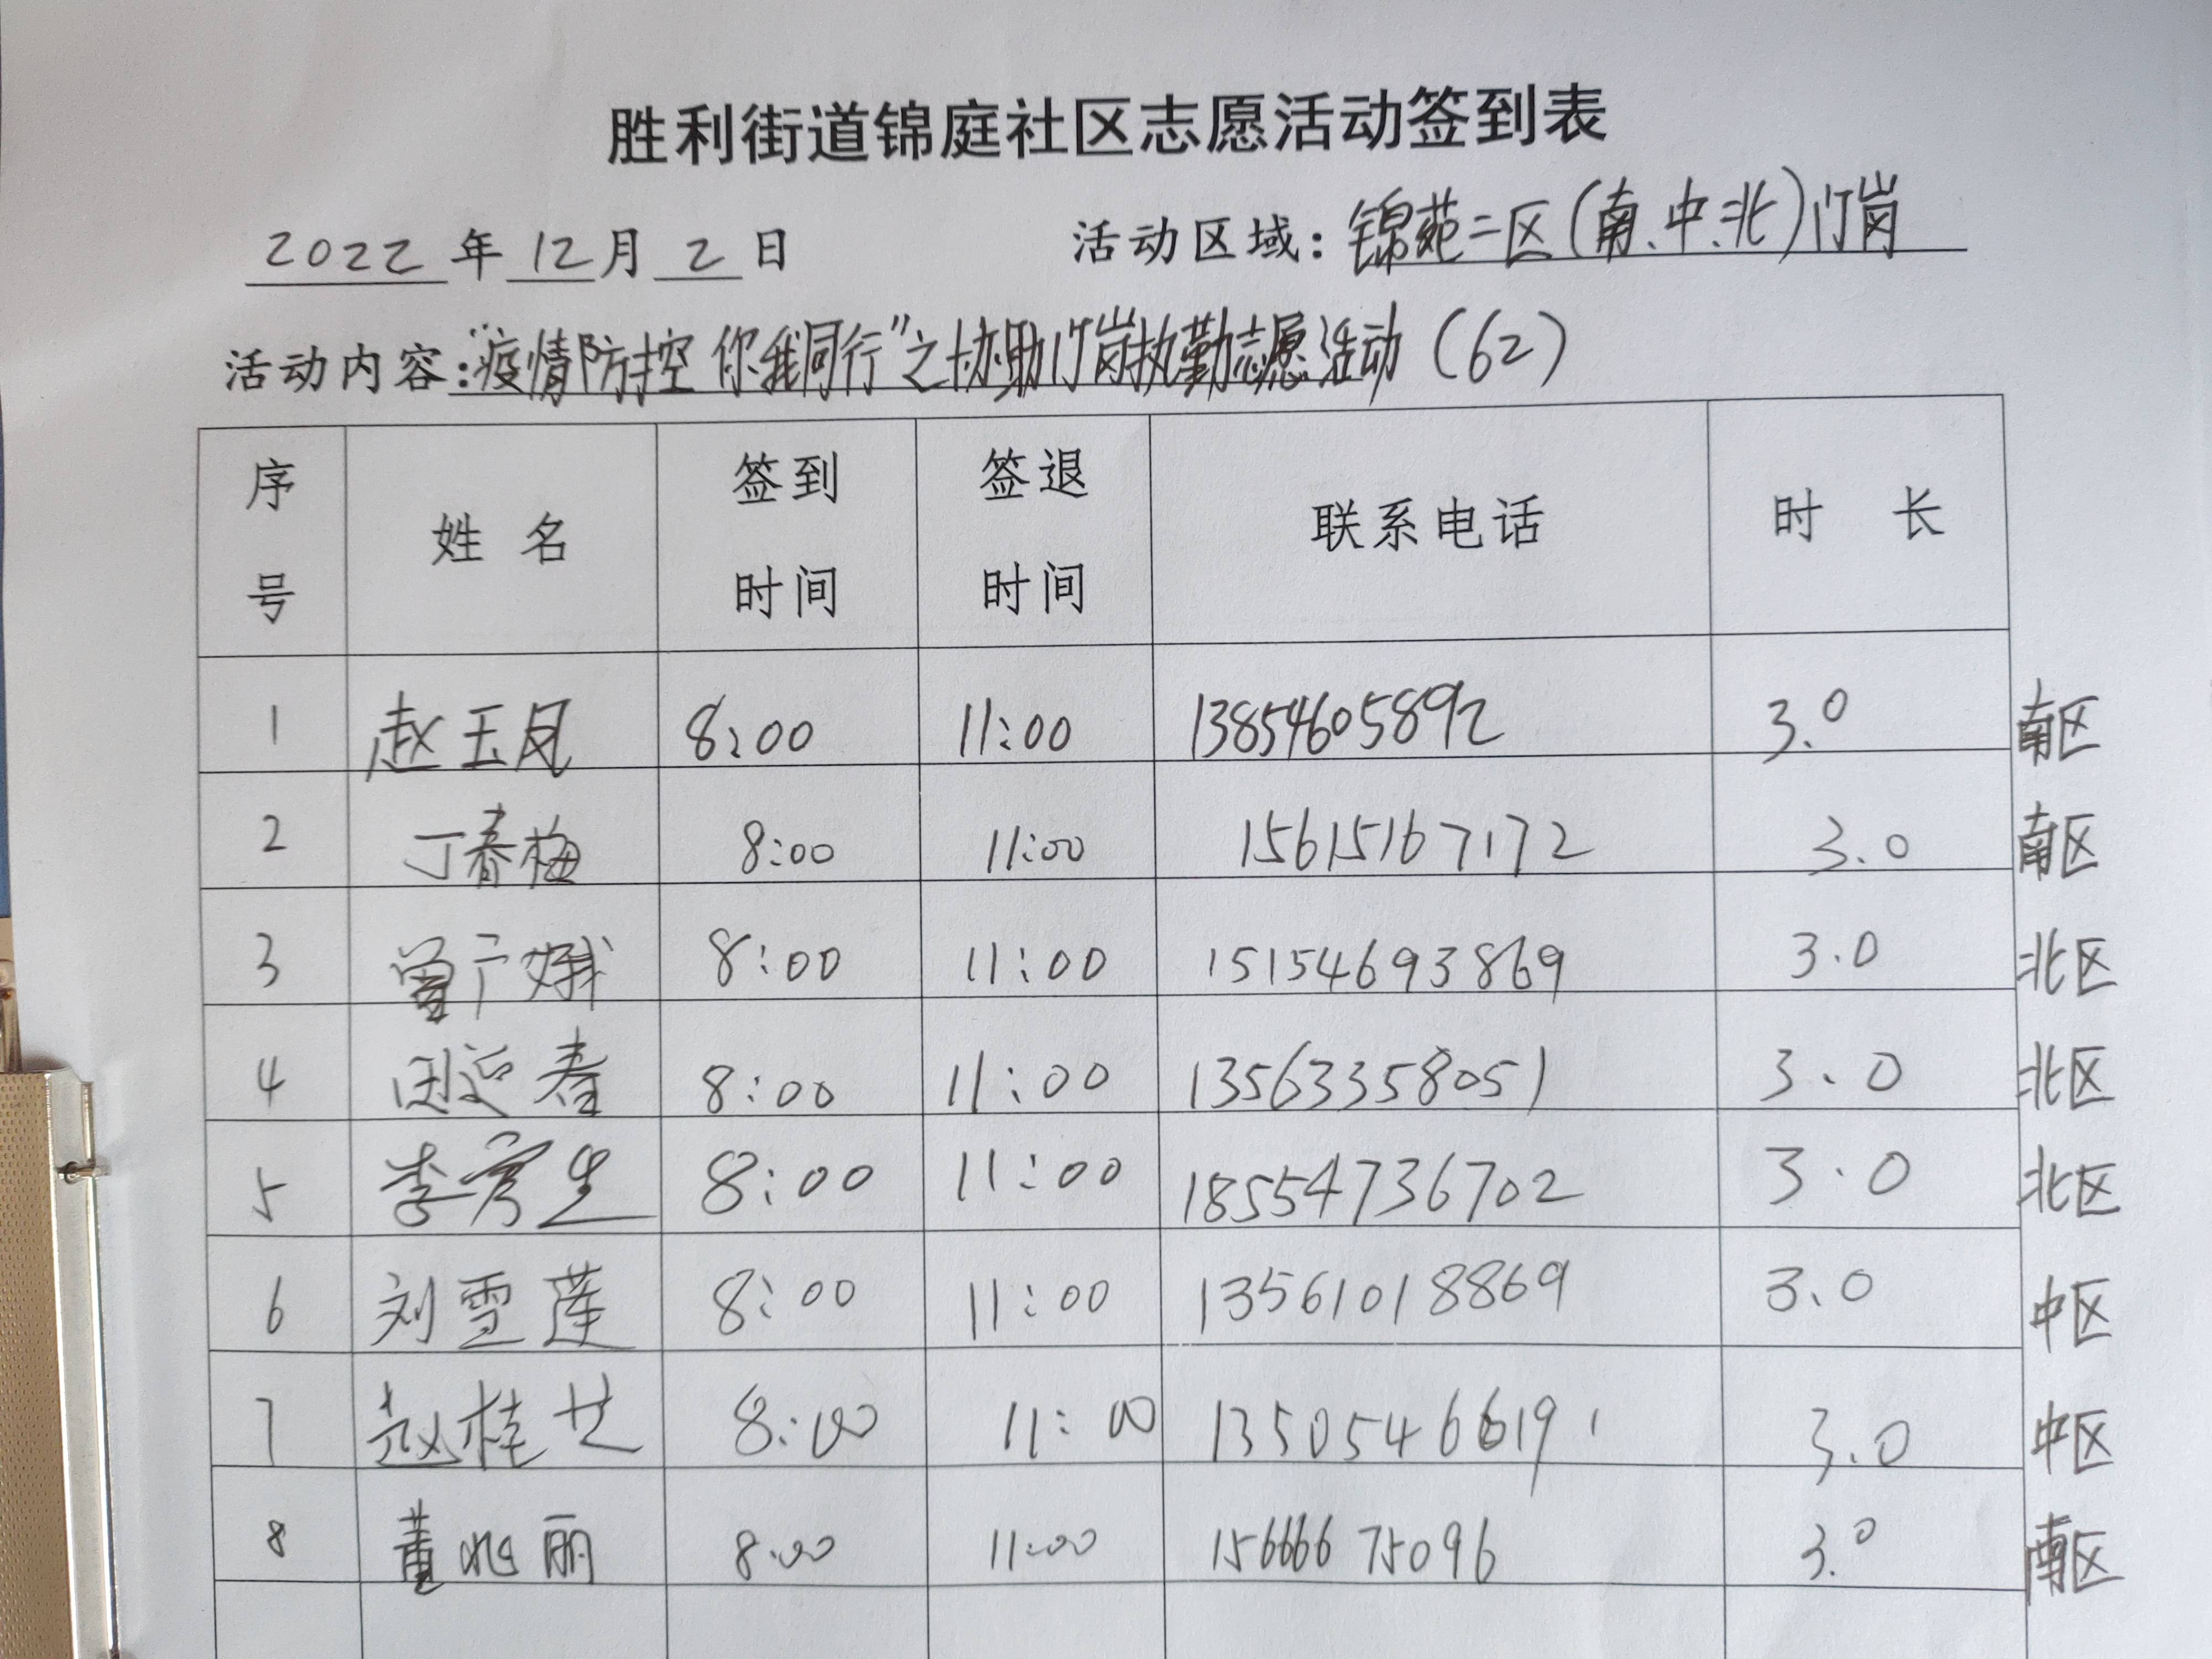 胜利街道锦庭社区志愿活动签到表
2022年12月2日 活动区域：锦苑二区(南、中、北)门岗
活动内容："疫情防控 你我同行"之协助门岗执勤志愿活动(62)
序号 姓名 签到时间 签退时间 联系电话 时长
1 赵玉凤 8:00 11:00 13854605892 3.0 南区
2 丁春梅 8:00 11:00 15615167172 3.0 南区
3 曾广娥 8:00 11:00 15154693869 3.0 北区
4 田迎春 8:00 11:00 13563358051 3.0 北区
5 李 8:00 11:00 18554736702 3.0 北区
6 刘雪莲 8:00 11:00 13561018869 3.0 中区
7 赵桂芝 8:00 11:00 13505466191 3.0 中区
8 董兆丽 8:00 11:00 15666675096 3.0 南区